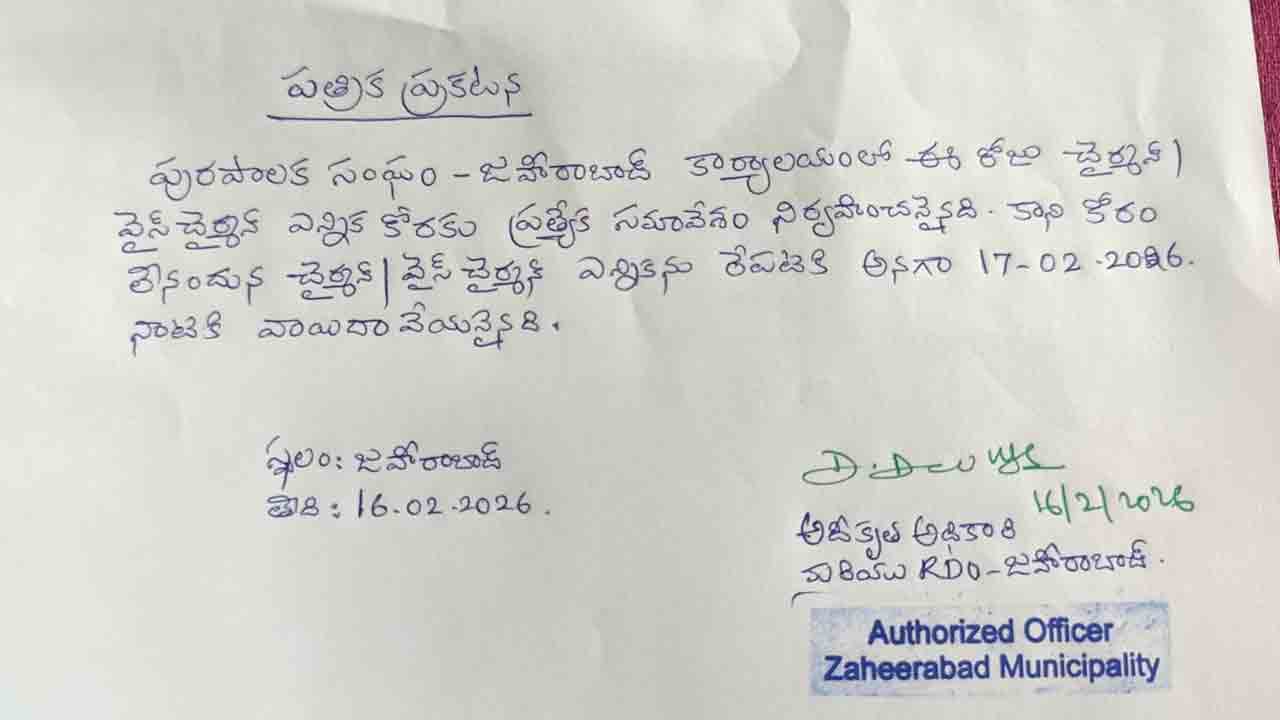 పత్రిక ప్రకటన
పురపాలక సంఘం - జహీరాబాద్ కార్యాలయంలో ఈ రోజు చైర్మన్ |
వైస్ చైర్మన్ ఎన్నిక కోరకు ప్రత్యేక సమావేశం నిర్వహించనైనది. కాని కోరం
లేనందున చైర్మన్ | వైస్ చైర్మన్ ఎన్నికను రేపటికి అనగా 17-02-2026.
నాటికి వాయిదా వేయనైనది.
స్థలం: జహీరాబాద్
తేది: 16.02.2026.
16/2/2026
అధీకృత అధికారి
మరియు RDO - జహీరాబాద్.
Authorized Officer
Zaheerabad Municipality